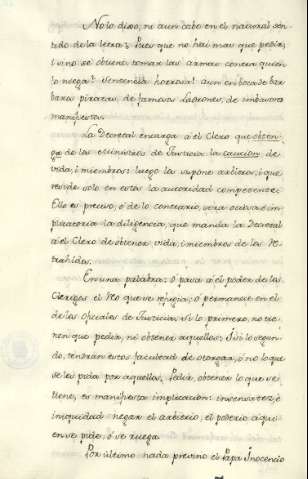 No lo dixo, ni aun cabe en el natural sen-
tido de la letra. Pues que no hai mas que pedir,
i sino se obtiene tomar las armas contra quien
lo niega? Sentencia horrorosa! aun en boca de bar
baros piratas, de famosos Ladrones, de
La Decretal encarga á el Clero que obten-
ga de los Ministros de Justicia la caucion de
vida, i miembros: luego los supone arbitros; i que
reside solo en estos la autoridad competente.
Ello es preciso, ó de lo contrario, seria
la diligencia, que manda la Decretal
á el Clero de obtener vida, i miembros de los Re-
trahídos.
En una palabra: ó pasa á el poder de los
Clerigos el Reo que se refugia; ó permanece en el
de los oficiales de Justicia. Si lo primero, no tie-
nen que pedir, ni obtener aquellos: Si lo segun-
do, tendran estos facultad de otorgar, ó no lo que
se les pida por aquellos. Pedir, obtener lo que se
tiene, es manifiesta implicacion: insensatez, é
iniquidad negar el arbitrio, el poderio á qui-
en se pide, ó se ruega.
Por último nada previno el Papa Inocencio